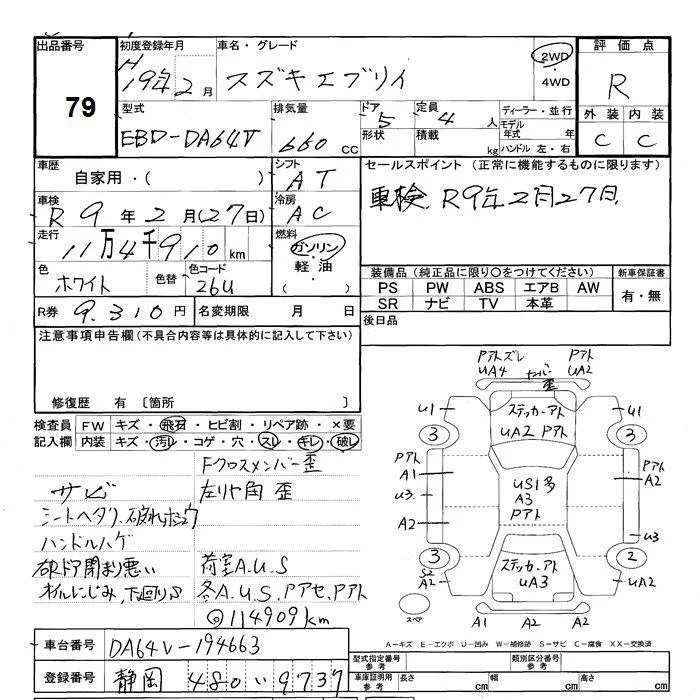 出品番号
79
初度登録年月
H
19年 2月
車名・グレード
スズキ エブリイ
2WD
・
4WD
評価点
R
外装 内装
C C
型式
EBD-DA64V
排気量
660 cc
ドア 5
形状
定員 4 人
積載 kg
ディーラー・並行
モデル
年式 年
ハンドル 左・右
車歴
自家用・( )
シフト
AT
セールスポイント (正常に機能するものに限ります)
車検 R9年2月27日
車検
R 9年 2月(27日)
冷房
AC
走行
11万4千910km
燃料
ガソリン
・
軽油
( )
色
ホワイト
色替
色コード
26U
装備品 (純正品に限り○をつけてください)
PS PW ABS エアB AW
SR ナビ TV 本革
新車保証書
有・無
R券 9,310円
名変期限 月 日
後日品
注意事項申告欄(不具合内容等は具体的に記入して下さい)
修復歴 有 〔箇所
検査員
記入欄
FW キズ・飛石・ヒビ割・リペア跡・×要
内装 キズ・汚レ・コゲ・穴・スレ・キレ・破レ
Fクロスメンバー歪
サビ
左リヤ角 歪
シートヘタリ、破れホシュウ
ハンドルハゲ
荷室A.U.S
オイルにじみ、下回りS
各A.U.S.Pアセ.Pアト
@114909km
車台番号 DA64V-194663
登録番号 静岡 480 い 9737
Pアトズレ
UA4
ナンバー
歪
Pアト
UA2
U1
ステッカーアト
UA2 Pアト
U1
3
3
Pアト
A1
U3
A2
US1多
A3
Pアト
Pアト
A2
U3
3
2
S2
A2
ステッカーアト
UA3
UA2
スペア
A1 A2 A1
A-キズ E-エクボ U-凹み W-補修跡 S-サビ C-腐食 XX-交換済
型式指定番号
参考
類別区分番号
参考
車庫証明用
参考
長さ cm
幅 cm
高さ cm